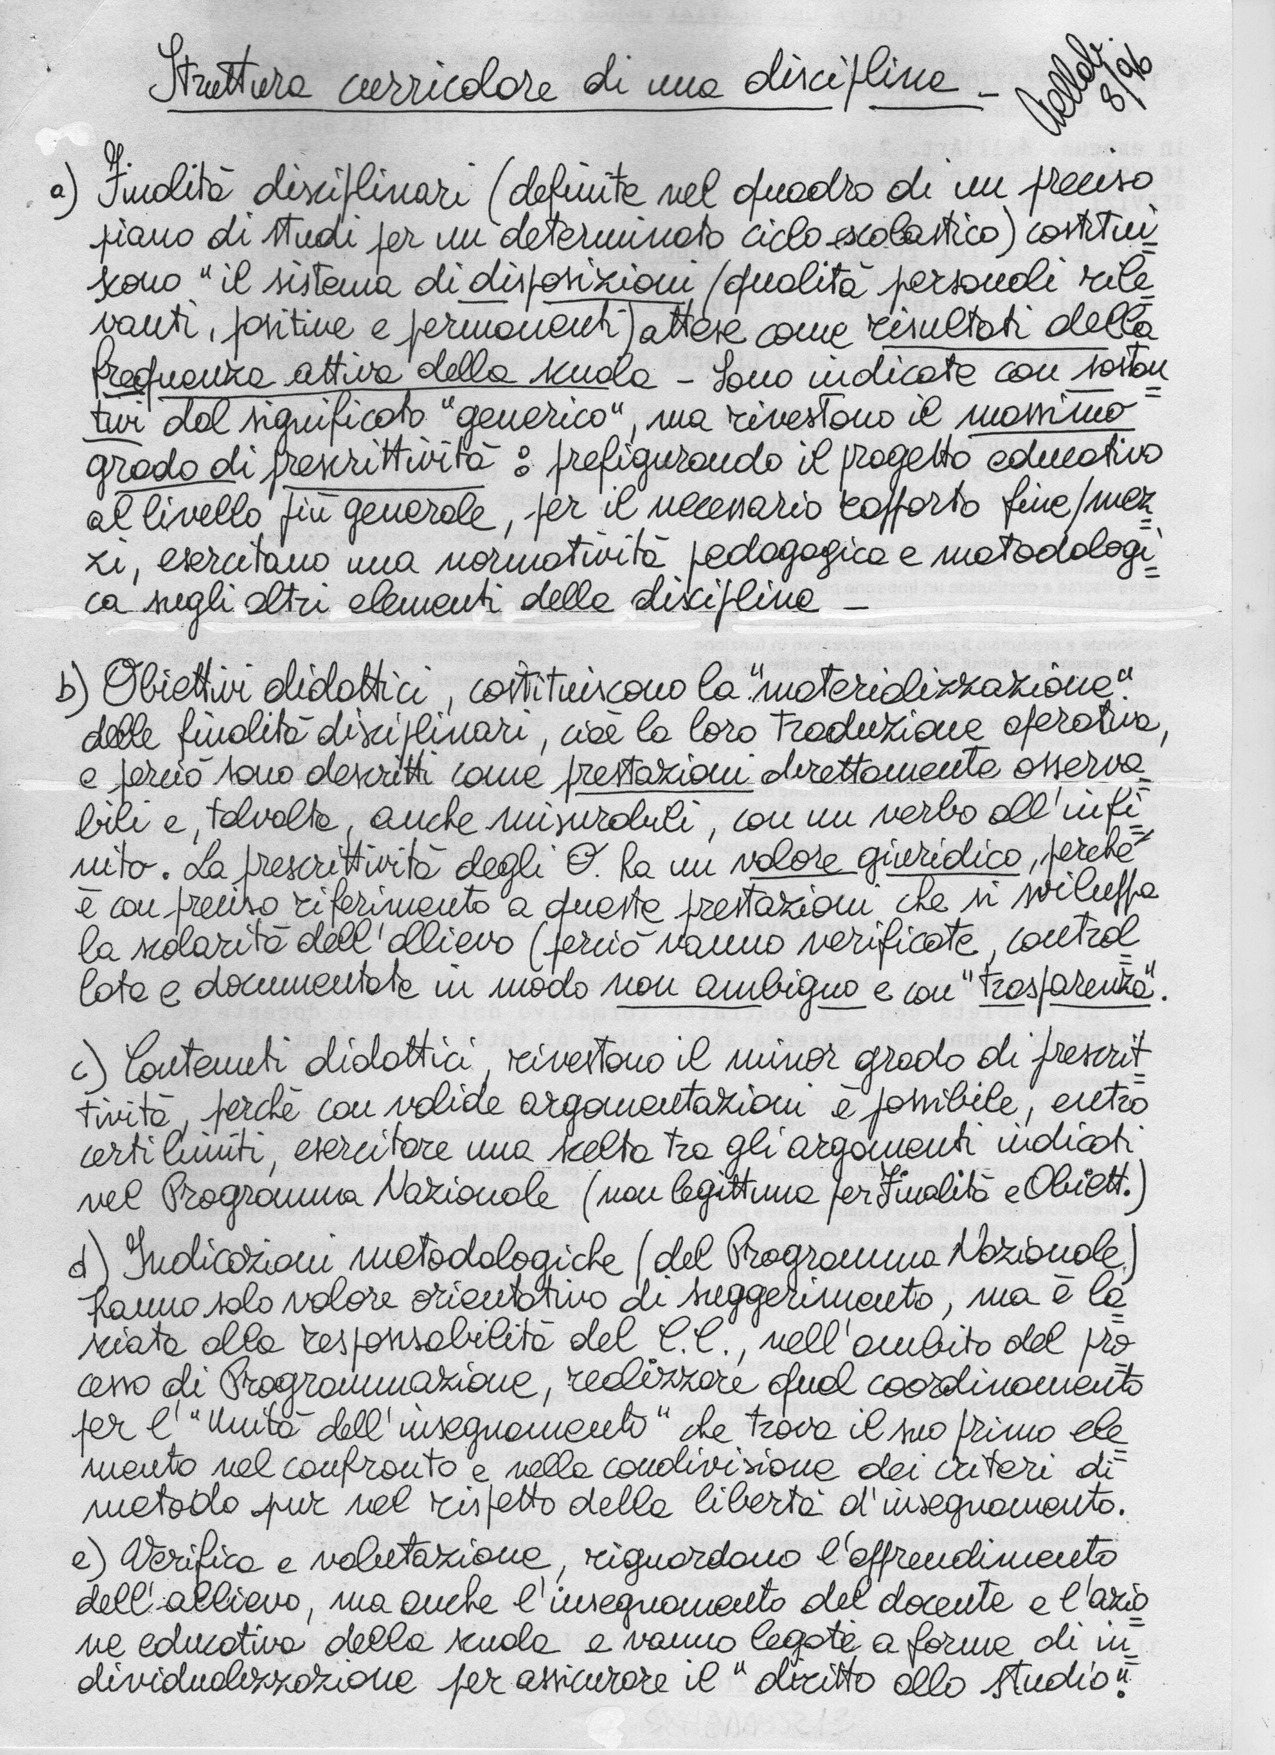 Struttura curricolare di una disciplina -
8/96
a) Finalità disciplinari (definite nel quadro di un preciso
piano di studi per un determinato ciclo scolastico) costitui=
scono "il sistema di disposizioni (qualità personali rile=
vanti, positive e permanenti) attese come risultati della
frequenza attiva della scuola - Sono indicate con sostan=
tivi dal significato "generico", ma rivestono il massimo
grado di prescrittività : prefigurando il progetto educativo
al livello più generale, per il necessario rapporto fine/mez=
zi, esercitano una normatività pedagogica e metodologi=
ca sugli altri elementi della disciplina -
b) Obiettivi didattici, costituiscono la "materializzazione"
delle finalità disciplinari, cioè la loro traduzione operativa,
e perciò sono descritti come prestazioni direttamente osserva=
bili e, talvolta, anche misurabili, con un verbo all'infi=
nito. La prescrittività degli O. ha un valore giuridico, perchè
è con preciso riferimento a queste prestazioni che si sviluppa
la scolarità dell'allievo (perciò vanno verificate, control=
late e documentate in modo non ambiguo e con "trasparenza".
c) Contenuti didattici, rivestono il minor grado di prescrit=
tività, perchè con valide argomentazioni è possibile, entro
certi limiti, esercitare una scelta tra gli argomenti indicati
nel Programma Nazionale (non legittima per Finalità e Obiett.)
d) Indicazioni metodologiche (del Programma Nazionale)
hanno solo valore orientativo di suggerimento, ma è la=
sciata alla responsabilità del C.C., nell'ambito del pro=
cesso di Programmazione, realizzare quel coordinamento
per l'"Unità dell'insegnamento" che trova il suo primo ele=
mento nel confronto e nella condivisione dei criteri di
metodo pur nel rispetto della libertà d'insegnamento.
e) Verifica e valutazione, riguardano l'apprendimento
dell'allievo, ma anche l'insegnamento del docente e l'azio=
ne educativa della scuola e vanno legate a forme di in=
dividualizzazione per assicurare il "diritto allo studio".